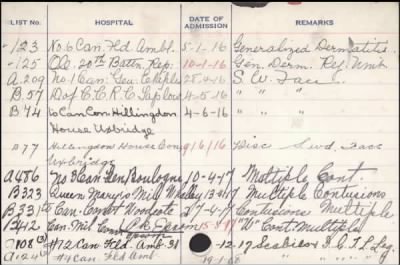 LIST No. HOSPITAL DATE OF ADMISSION REMARKS
123 No. 6 Can. Fld. Ambl. 5-1-16 Generalized Dermatitis
125 20th Battn. Rep. 10-1-16 Gen. Derm.
A.209 No. 1 Can. Gen. Etaples 28-4-16 S.W. Face
B.57 D of C.C.R.C. Taplow 4-5-16 " "
B74 to Can Con. Hillingdon 4-6-16 " "
House Uxbridge
B77 Hillingdon House Con 9/6/16 Disc Swd. Face
Uxbridge
A486 No 3 Can. Gen Boulogne 10-4-17 Multiple Cont.
B323 Queen Marys Mil Whalley 13-4-17 Multiple Contusions
Can. Conv. Woodcote 27-4-17 Contusions Multiple
Can. Mil. Epsom 15- "W" Cont. Multiple
108 (3) #12 Can Fld. Amb. 31-12-17 Scabies I.C.T. Leg
# 4 Can. Fld Amb 19-1-08